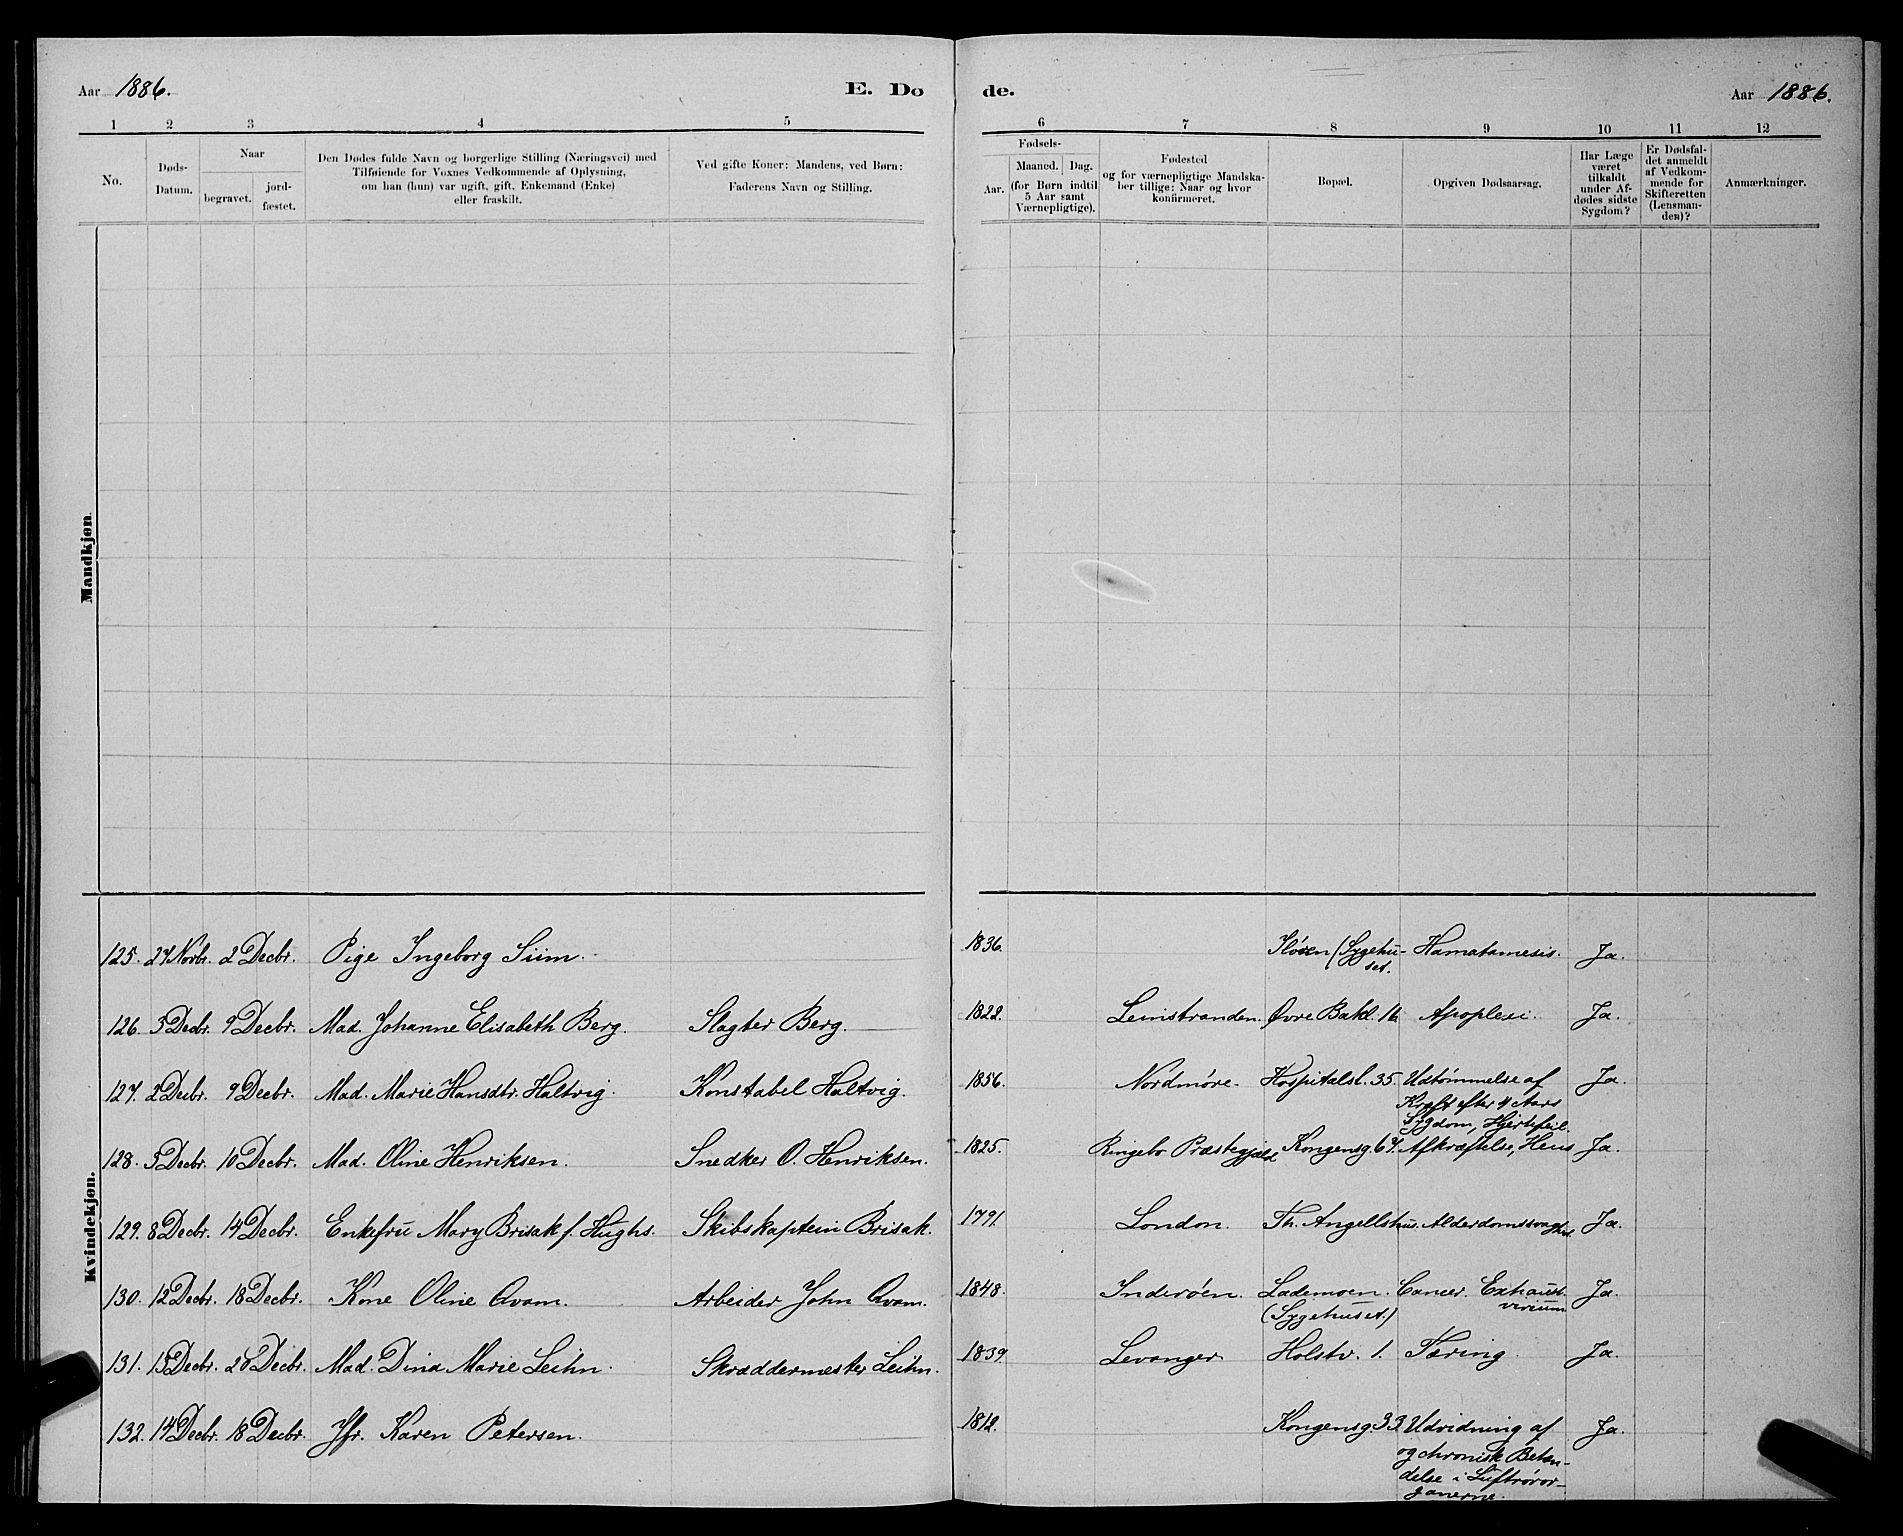 Aar 1886. E. Dø de. Aar 1886.
1 2 3 4 5 6 7 8 9 10 11 12
No.
Døds-
Datum.
Naar
begravet.
jord-
fæstet.
Den Dødes fulde Navn og borgerlige Stilling (Næringsvei) med
Tilføiende for Voxnes Vedkommende af Oplysning,
om han (hun) var ugift, gift, Enkemand (Enke)
eller fraskilt.
Ved gifte Koner: Mandens, ved Børn:
Faderens Navn og Stilling.
Fødsels-
Aar.
Maaned. Dag.
(for Børn indtil
5 Aar samt
Værnepligtige).
Fødested
og for værnepligtige Mandska-
ber tillige: Naar og hvor
konfirmeret.
Bopæl.
Opgiven Dødsaarsag.
Har Læge
været
tilkaldt
under Af-
dødes sidste
Sygdom?
Er Dødsfal-
det anmeldt
af Vedkom-
mende for
Skifteretten
(Lensman-
den)?
Anmærkninger.
Mandkjøn
Kvindekjøn.
125. 27 Novbr. 2 Decbr. Pige Ingeborg Siim. 1836. Iløren (Sygehu- Hamatamesis. Ja.
set.
126. 3 Decbr. 9 Decbr. Mad. Johanne Elisabeth Berg. Slagter Berg. 1822. Leinstranden. Øvre Bakl. 16 Apoplexi. Ja.
127. 2 Decbr. 9 Decbr. Mad. Marie Hansdtr. Haltvig. Konstabel Haltvig. 1856. Nordmøre. Hospitalsl. 35. Udtømmelse af Ja.
Kraft efter 4 Aars
Sygdom, Hjertefeil.
128. 5 Decbr. 10 Decbr. Mad. Oline Henriksen. Snedker O. Henriksen. 1825. Ringebo Præstegjæld Kongensg. 67. Afkræftelse, Ja.
129. 8 Decbr. 14 Decbr. Enkefru Mary Brisak f. Hughs. Skibskaptein Brisak. 1791. London. Th. Angellshus. Alderdomssvaghed. Ja.
130. 12 Decbr. 18 Decbr. Kone Oline Qvam. Arbeider John Qvam. 1848. Inderøen. Lademoen. Cancer. Exhaust. Ja.
(Sygehuset.) virium
131. 15 Decbr. 20 Decbr. Mad. Dina Marie Leihn. Skræddermester Leihn. 1839. Levanger. Holstv. 1. Tæring. Ja.
132. 14 Decbr. 18 Decbr. Jfr. Karen Petersen. 1812. Kongensg. 33. Udvidning af Ja.
og chronisk Betæn-
delse i Luftrøror-
ganerne.